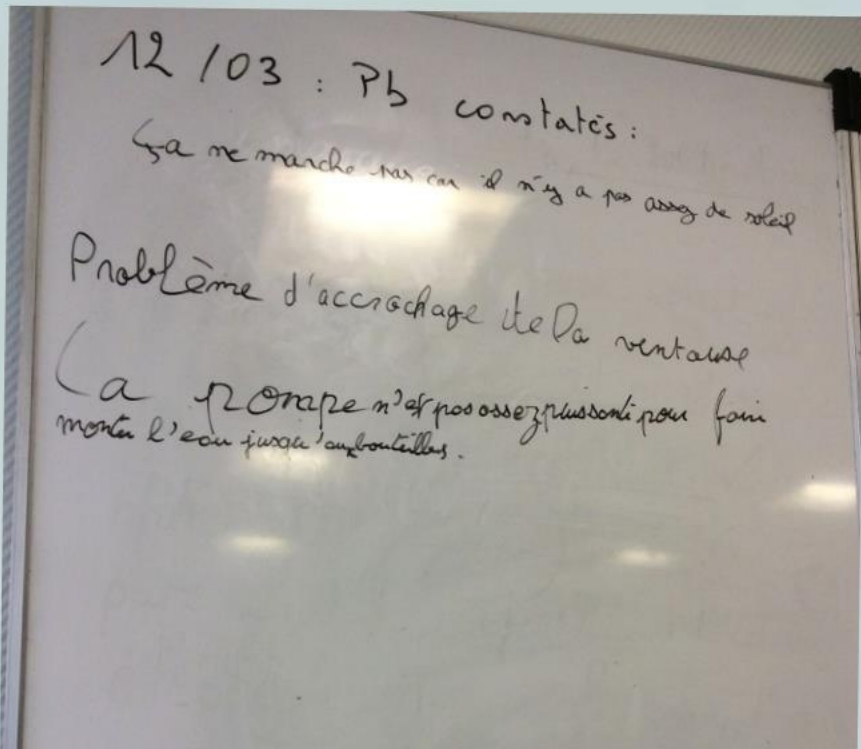 12/03 : Pb constatés :
ça ne marche pas car il n'y a pas assez de soleil
Problème d'accrochage de la ventouse
La pompe n'est pas assez puissante pour faire
monter l'eau jusqu'aux bouteilles.